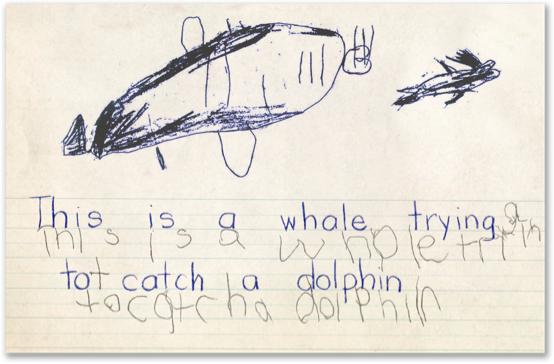 This is a whale trying
This is a whale tryin g
tot catch a dolphin
to catch a dolphin